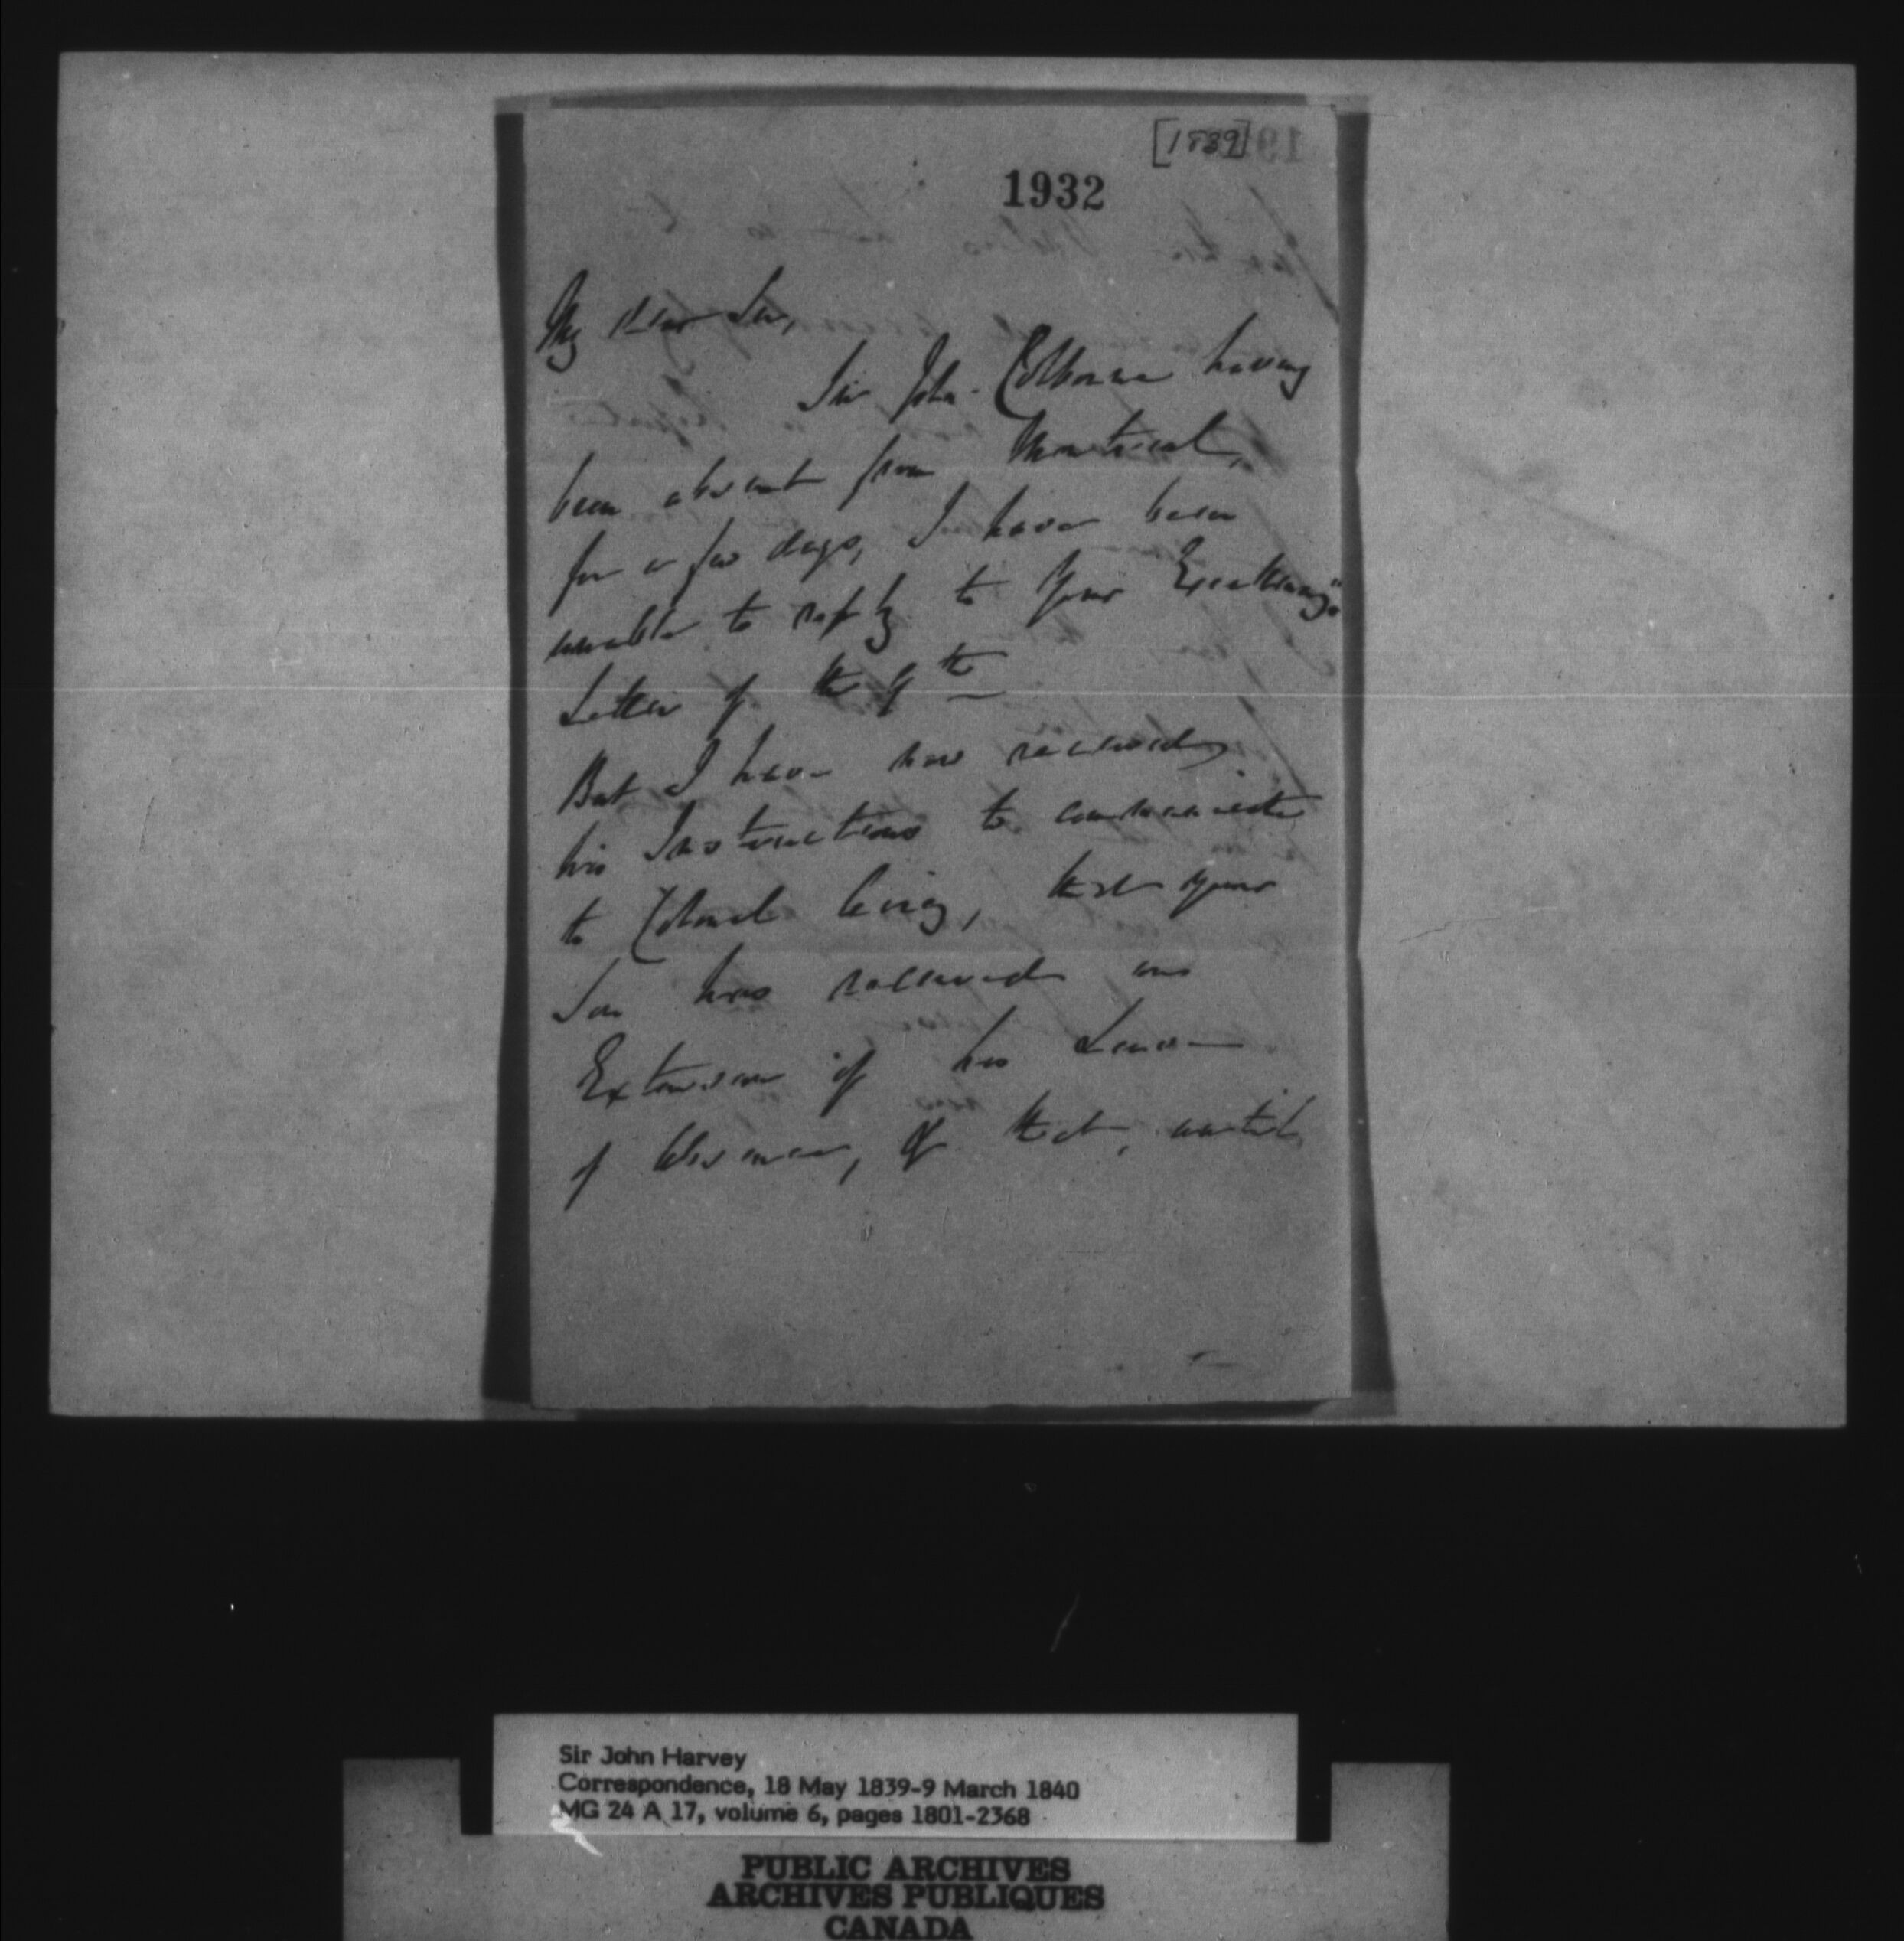 [1839]
1932
My dear Sir,
Sir John Colborne having
been absent from Montreal,
for a few days, I have been
unable to reply to Your Excellency's
Letter of the 9th
But I have now received
his Instructions to communicate
to Colonel that your
Son has received an
Extension of his Leave
of Absence, of that, until
Sir John Harvey
Correspondence, 18 May 1839-9 March 1840
MG 24 A 17, volume 6, pages 1801-2368
PUBLIC ARCHIVES
ARCHIVES PUBLIQUES
CANADA